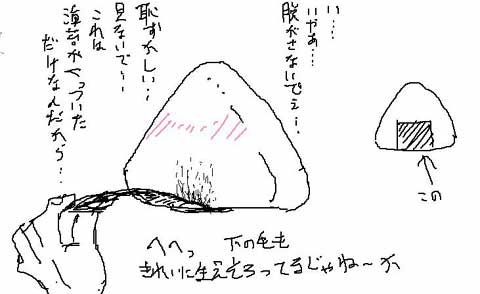 い…
いやあ…
脱がさないでぇ…
恥ずかしい…
見ないで…
これは
海苔がくっついた
だけなんだから…
この
へへっ 下の毛も
きれいに生えそろってるじゃね〜か